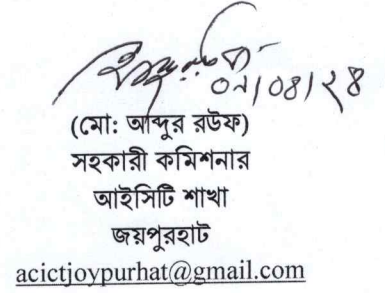 ০৭/০৪/২৪
(মো: আব্দুর রউফ)
সহকারী কমিশনার
আইসিটি শাখা
জয়পুরহাট
acictjoypurhat@gmail.com